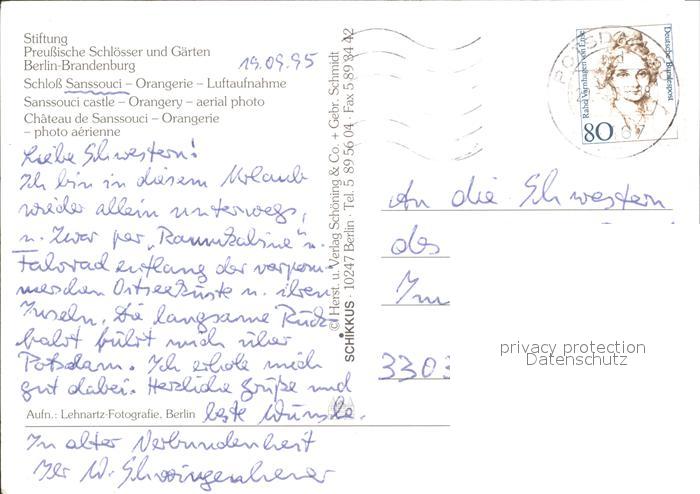 Stiftung
Preußische Schlösser und Gärten
Berlin-Brandenburg
19.09.95
Schloß Sanssouci – Orangerie – Luftaufnahme
Sanssouci castle – Orangery – aerial photo
Château de Sanssouci – Orangerie
– photo aérienne
Liebe Schwestern!
Ich bin in diesem Urlaub
wieder allein unterwegs,
u. zwar per „Raumkabine" u.
Fahrrad entlang der vorpom-
merschen Ostseeküste u. ihren
Inseln. Die langsame Rück-
fahrt führt mich über
Potsdam. Ich erhole mich
gut dabei. Herzliche Grüße und
Aufn.: Lehnartz-Fotografie, Berlin
beste Wünsche.
In alter Verbundenheit
Ihr W.
© Herst. u. Verlag Schöning & Co. + Gebr. Schmidt
SCHIKKUS · 10247 Berlin · Tel. 5 89 56 04 · Fax 5 89 84 42
POTSDAM
Rahel Varnhagen von Ense
Deutsche Bundespost
80
An die Schwestern
des
Im
3303
privacy protection
Datenschutz